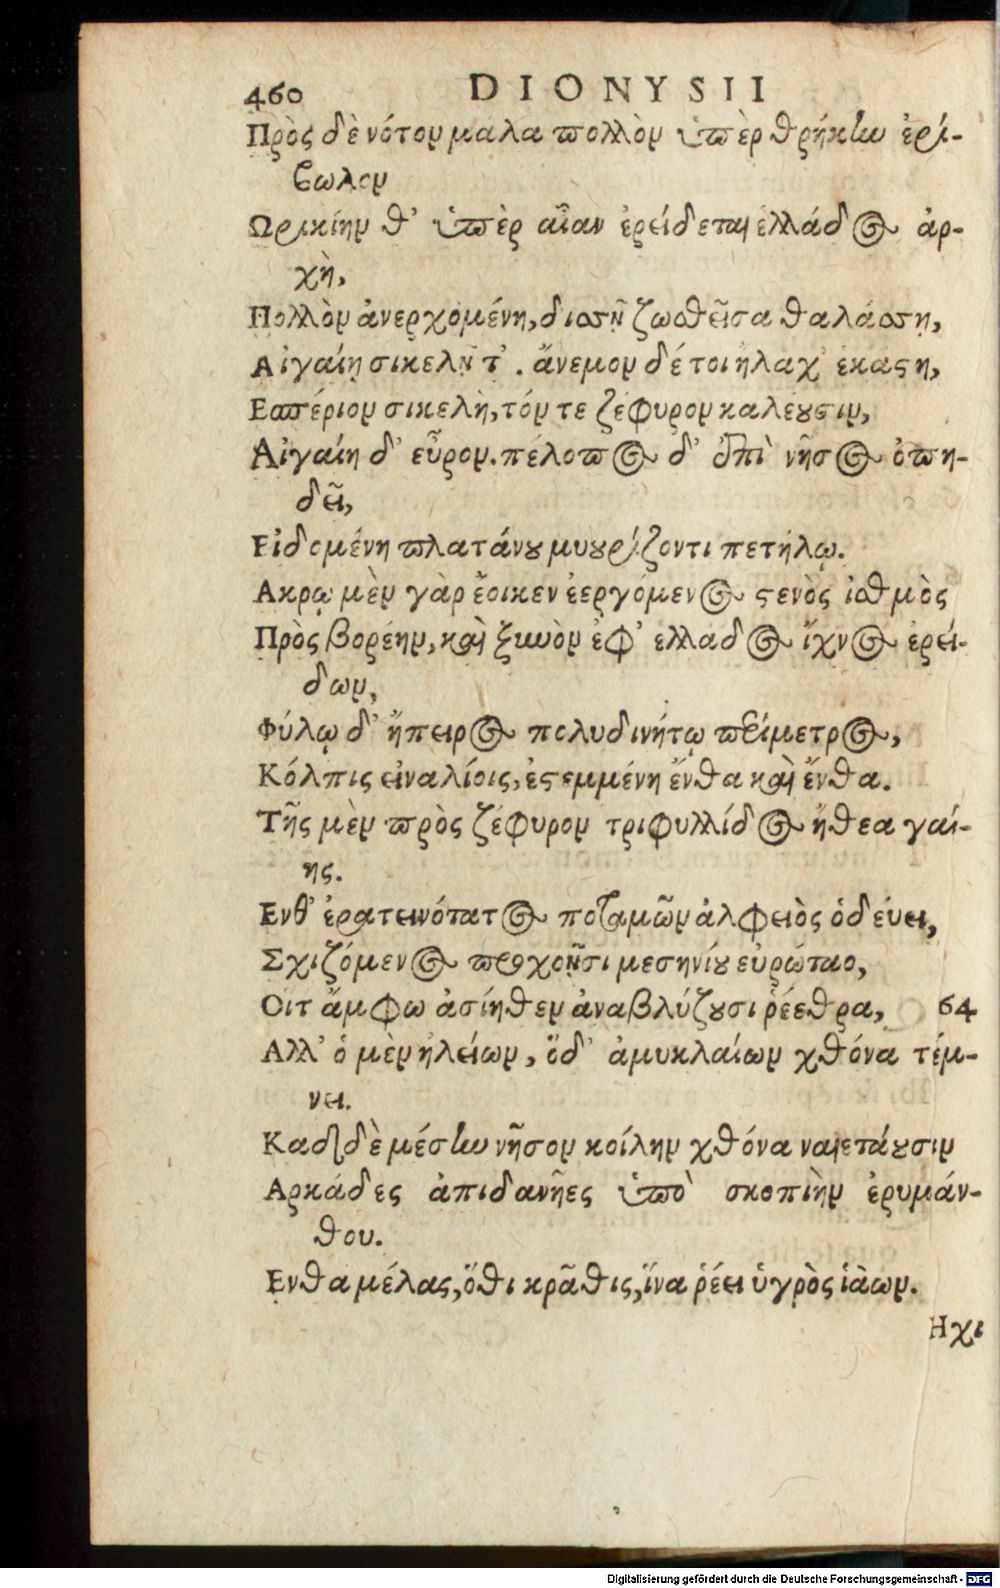 460 DIONYSII
Πρὸς δὲ νότον μαλα πολλὸν ὑπὲρ θρῄκην ἐρί-
βωλον
Ωρικίην θ' ὑπὲρ αἶαν ἐρείδεται ἑλλάδος ἀρ-
χὴ,
Πολλὸν ἀνερχομένη, δισσῇ ζωσθεῖσα θαλάσσῃ,
Αἰγαίῃ σικελῇ τ'. ἄνεμον δέ τοι ἤλαχ' ἑκάστη,
Εσπέριον σικελὴ, τόν τε ζέφυρον καλέουσιν,
Αἰγαίη δ' εὖρον. πέλοπος δ' ἐπὶ νῆσος ὀπη-
δεῖ,
Εἰδομένη πλατάνου μυουρίζοντι πετήλῳ.
Ακρῳ μὲν γὰρ ἔοικεν ἐεργόμενος στενὸς ἰσθμὸς
Πρὸς βορέην, καὶ ξυνὸν ἐφ' ελλαδος ἴχνος ἐρεί-
δων,
Φύλῳ δ' ἤπειρος πολυδινήτῳ περίμετρος,
Κόλπις εἰναλίοις, ἐστεμμένη ἔνθα καὶ ἔνθα.
Τῆς μὲν πρὸς ζέφυρον τριφυλλίδος ἤθεα γαί-
ης.
Ενθ' ἐρατεινότατος ποταμῶν ἀλφειὸς ὁδέυει,
Σχιζόμενος προχοῇσι μεσηνίου εὐρώταο,
Οιτ ἄμφω ἀσίηθεν ἀναβλύζουσι ῥέεθρα, 64
Αλλ' ὁ μὲν ἠλείων, ὅδ' ἀμυκλαίων χθόνα τέμ-
νει.
Καδδὲ μέσην νῆσον κοίλην χθόνα ναιετάουσιν
Αρκάδες ἀπιδανῆες ὑπὸ σκοπιὴν ἐρυμάν-
θου.
Ενθα μέλας, ὅθι κρᾶθις, ἵνα ῥέει ὑγρὸς ἰάων.
Ηχι
Digitalisierung gefördert durch die Deutsche Forschungsgemeinschaft - DFG